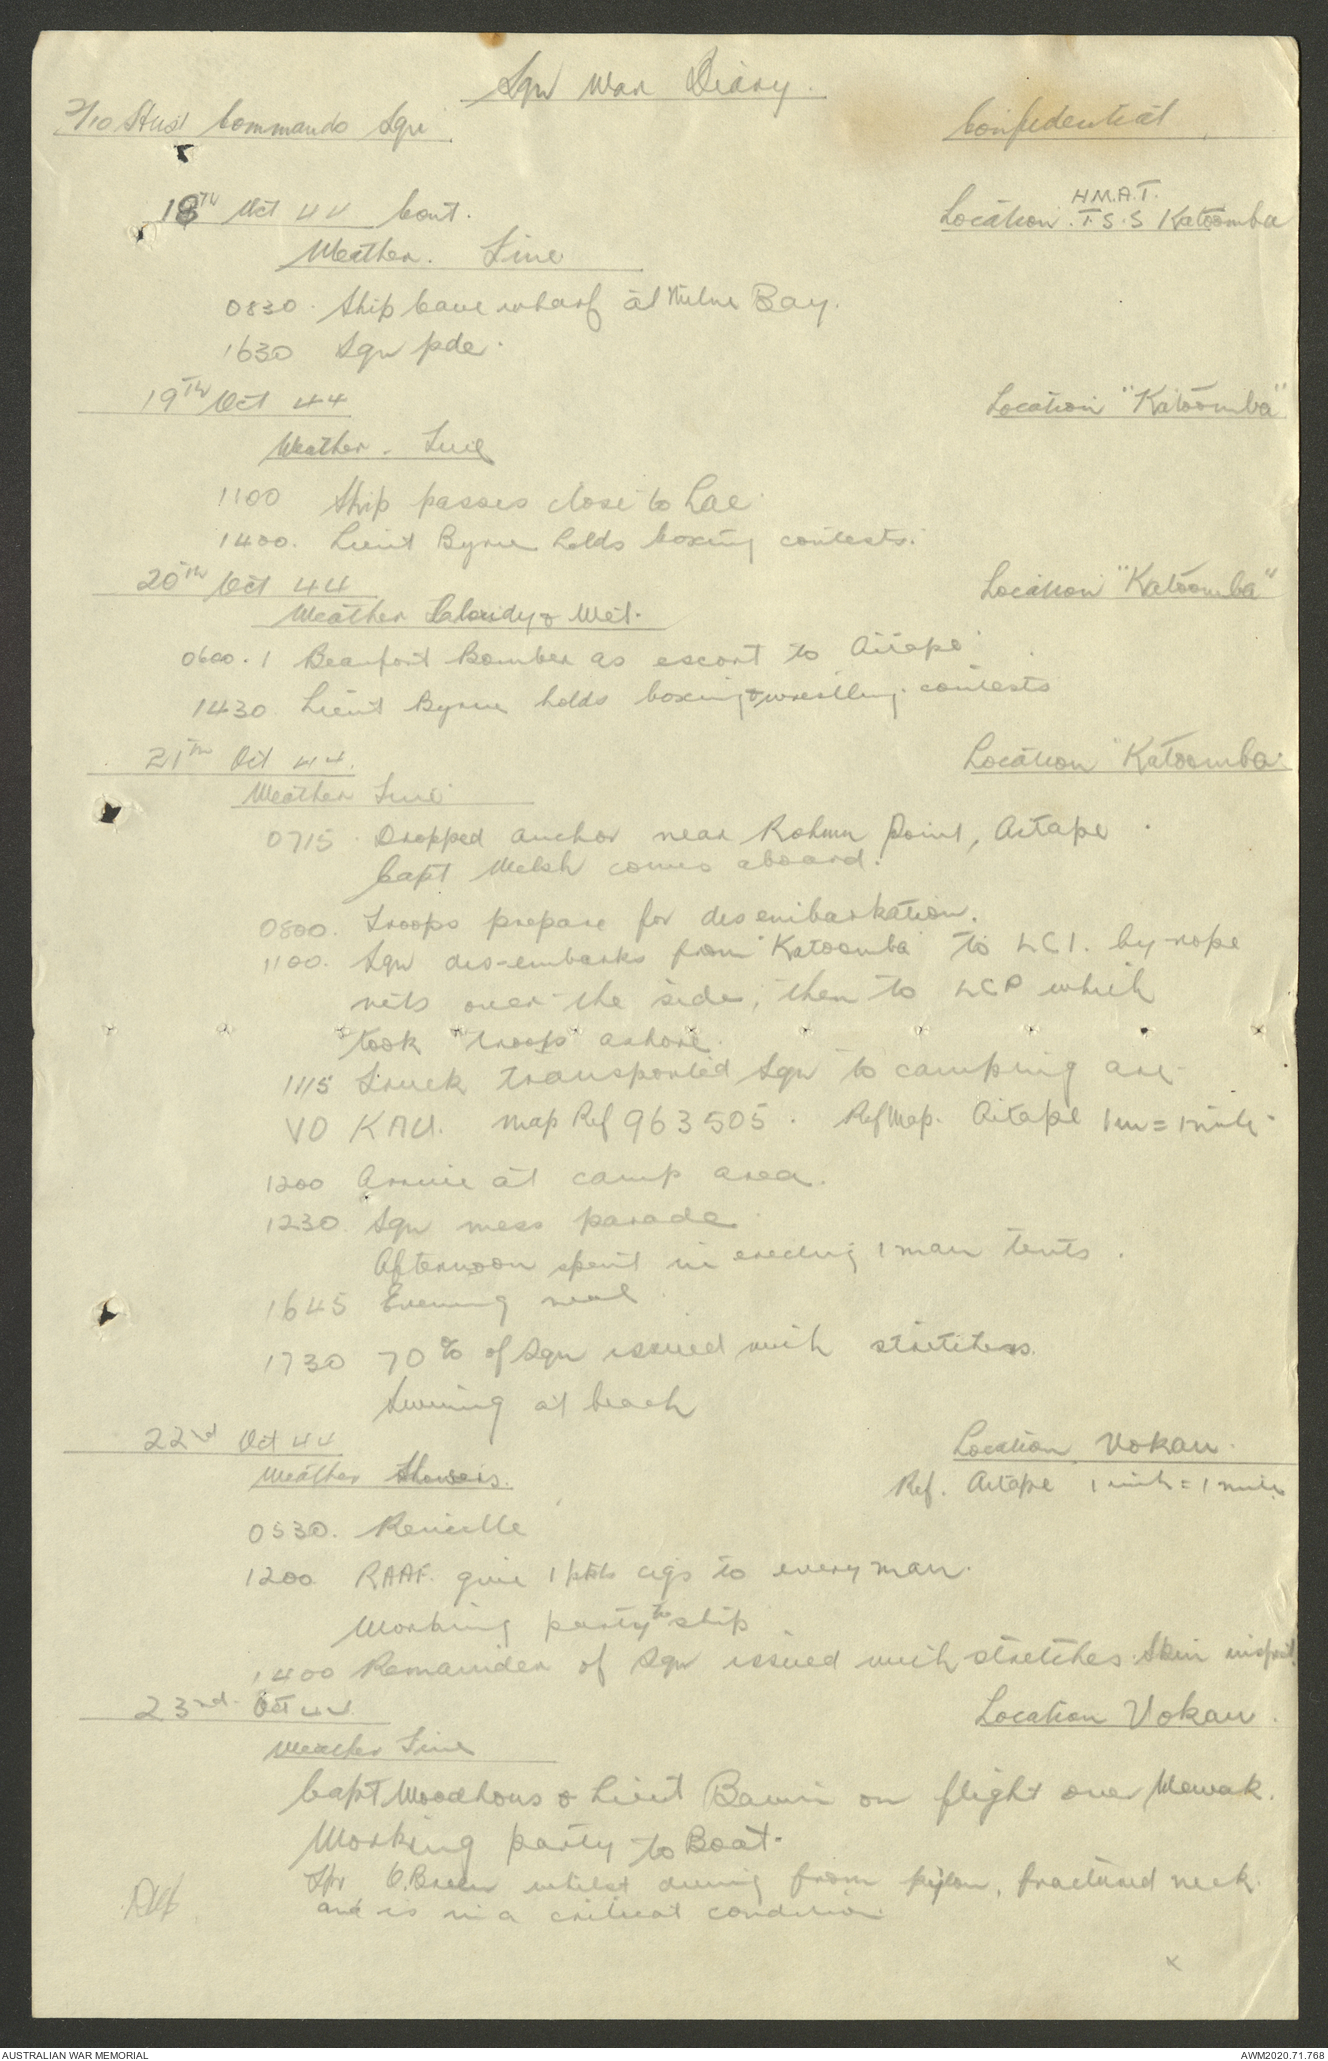 Sqn War Diary.
2/10 Aust Commando Sqn
Confidential
18TH Oct 44 Cont.
H.M.A.T.
Location. T.S.S Katoomba
Weather. Fine
0830. Ship leave wharf at Milne Bay.
1630 Sqn pde.
19TH Oct 44
Location "Katoomba"
Weather. Fine
1100 Ship passes close to Lae.
1400. Lieut Byrne holds boxing contests.
20TH Oct 44
Location "Katoomba"
Weather Cloudy & Wet.
0600. 1 Beaufort Bomber as escort to Aitape
1430 Lieut Byrne holds boxing & wrestling contests
21TH Oct 44.
Location "Katoomba"
Weather Fine
0715 Dropped anchor near Rohm Point, Aitape
Capt Welsh comes aboard.
0800. Troops prepare for disembarkation.
1100. Sqn dis-embarks from "Katoomba" to LCI. by rope
nets over the side, then to LCP which
took "troops" ashore.
1115 Truck transported Sqn to camping are
VOKAU. Map Ref 963505. Ref Map. Aitape 1 in = 1 mile
1200 Arrive at camp area.
1230 Sqn mess parade.
Afternoon spent in erecting 1 man tents.
1645 Evening meal
1730 70% of Sqn issued with stretchers.
Swiming at beach
22nd Oct 44
Location Vokau.
Weather Showers.
Ref. Aitape 1 inch = 1 mile
0530. Reveille
1200 RAAF. give 1 pkt cigs to every man.
Working party to ship
1400 Remainder of Sqn issued with stretches. Skin
23rd. Oct 44
Location Vokau.
Weather Fine
Capt Woodhous & Lieut on flight over Wewak.
Working party to Boat.
Spr O.Breen whilst diving from pylon, fractured neck.
and is in a critical condition.
x
AUSTRALIAN WAR MEMORIAL
AWM2020.71.768